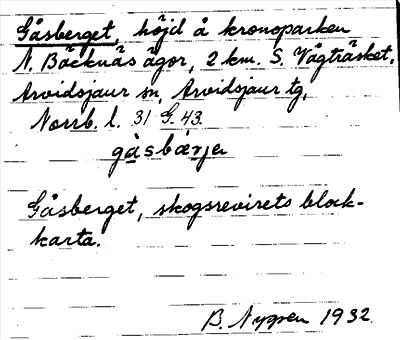 Gåsberget, höjd å kronoparken
N. Bäcknäs ägor, 2 km. S. Vägträsket,
Arvidsjaur sn, Arvidsjaur tg,
Norrb. l. 31 G. 43.
gåsbærje
Gåsberget, skogsrevirets block-
karta.
B. Nygren 1932.